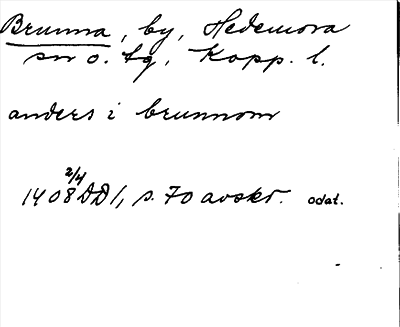 Brunna, by, Hedemora
sn o. tg, Kopp. l.
anders i brunnom
2/4
1408 DD 1, s. 70 avskr. odat.